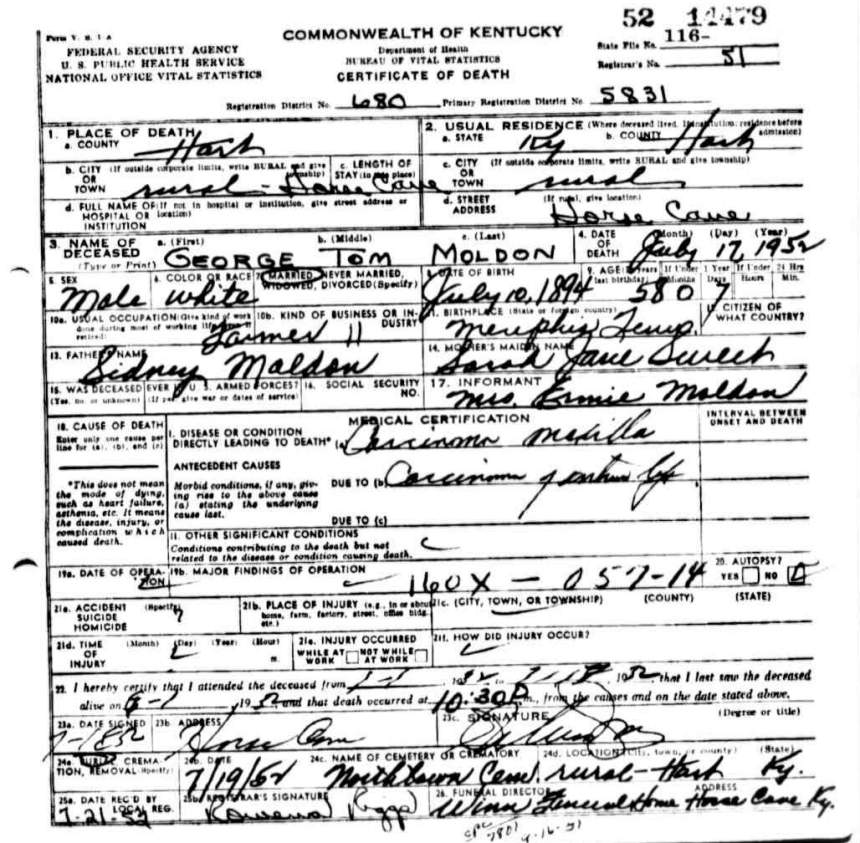 52 14479
Form V. S. 1 A
COMMONWEALTH OF KENTUCKY
FEDERAL SECURITY AGENCY
U. S. PUBLIC HEALTH SERVICE
NATIONAL OFFICE VITAL STATISTICS
Department of Health
BUREAU OF VITAL STATISTICS
CERTIFICATE OF DEATH
State File No. 116-
Registrar's No. 51
Registration District No. 680 Primary Registration District No. 5831
1. PLACE OF DEATH
a. COUNTY Hart
2. USUAL RESIDENCE (Where deceased lived. If institution: residence before admission)
a. STATE Ky b. COUNTY Hart
b. CITY (If outside corporate limits, write RURAL and give township)
OR
TOWN rural - Horse Cave
c. LENGTH OF
STAY (in this place)
c. CITY (If outside corporate limits, write RURAL and give township)
OR
TOWN rural
d. FULL NAME OF (If not in hospital or institution, give street address or location)
HOSPITAL OR
INSTITUTION
d. STREET (If rural, give location)
ADDRESS Horse Cave
3. NAME OF DECEASED
(Type or Print)
a. (First) b. (Middle) c. (Last)
GEORGE TOM MOLDON
4. DATE OF DEATH (Month) (Day) (Year)
July 17, 1952
5. SEX
Male
6. COLOR OR RACE
white
7. MARRIED, NEVER MARRIED,
WIDOWED, DIVORCED (Specify)
8. DATE OF BIRTH
July 10, 1894
9. AGE (In years last birthday) If Under 1 Year If Under 24 Hrs
Days Hours Min.
58 0 7
10a. USUAL OCCUPATION (Give kind of work done during most of working life, even if retired)
Farmer
10b. KIND OF BUSINESS OR INDUSTRY
11
11. BIRTHPLACE (State or foreign country)
Memphis Tenn.
12. CITIZEN OF
WHAT COUNTRY?
13. FATHER'S NAME
Sidney Moldon
14. MOTHER'S MAIDEN NAME
Sarah Jane Sweet
15. WAS DECEASED EVER IN U. S. ARMED FORCES?
(Yes, no or unknown) (If yes, give war or dates of service)
16. SOCIAL SECURITY
NO.
17. INFORMANT
Mrs. Ermie Moldon
18. CAUSE OF DEATH
Enter only one cause per
line for (a), (b), and (c)
MEDICAL CERTIFICATION
INTERVAL BETWEEN
ONSET AND DEATH
I. DISEASE OR CONDITION
DIRECTLY LEADING TO DEATH* (a) Carcinoma
*This does not mean
the mode of dying,
such as heart failure,
asthenia, etc. It means
the disease, injury, or
complication which
caused death.
ANTECEDENT CAUSES
Morbid conditions, if any, giving
rise to the above cause
(a) stating the underlying
cause last.
DUE TO (b) Carcinoma
DUE TO (c)
II. OTHER SIGNIFICANT CONDITIONS
Conditions contributing to the death but not
related to the disease or condition causing death.
19a. DATE OF OPERATION
19b. MAJOR FINDINGS OF OPERATION
160X - 057-14
20. AUTOPSY?
YES NO
21a. ACCIDENT (Specify)
SUICIDE
HOMICIDE
21b. PLACE OF INJURY (e.g., in or about home, farm, factory, street, office bldg. etc.)
21c. (CITY, TOWN, OR TOWNSHIP) (COUNTY) (STATE)
21d. TIME (Month) (Day) (Year) (Hour)
OF
INJURY m.
21e. INJURY OCCURRED
WHILE AT WORK NOT WHILE AT WORK
21f. HOW DID INJURY OCCUR?
22. I hereby certify that I attended the deceased from 1952 that I last saw the deceased
alive on 1952 and that death occurred at 10:30P m., from the causes and on the date stated above.
23a. DATE SIGNED
23b. ADDRESS
Horse Cave
23c. SIGNATURE (Degree or title)
24a. BURIAL, CREMATION, REMOVAL (Specify)
24b. DATE
7/19/52
24c. NAME OF CEMETERY OR CREMATORY
Northtown Cem.
24d. LOCATION (City, town, or county) (State)
rural - Hart Ky.
25a. DATE REC'D BY
LOCAL REG.
7-21-52
25b. REGISTRAR'S SIGNATURE
Rowena Riggs
26. FUNERAL DIRECTOR ADDRESS
Winn Funeral Home Horse Cave Ky.